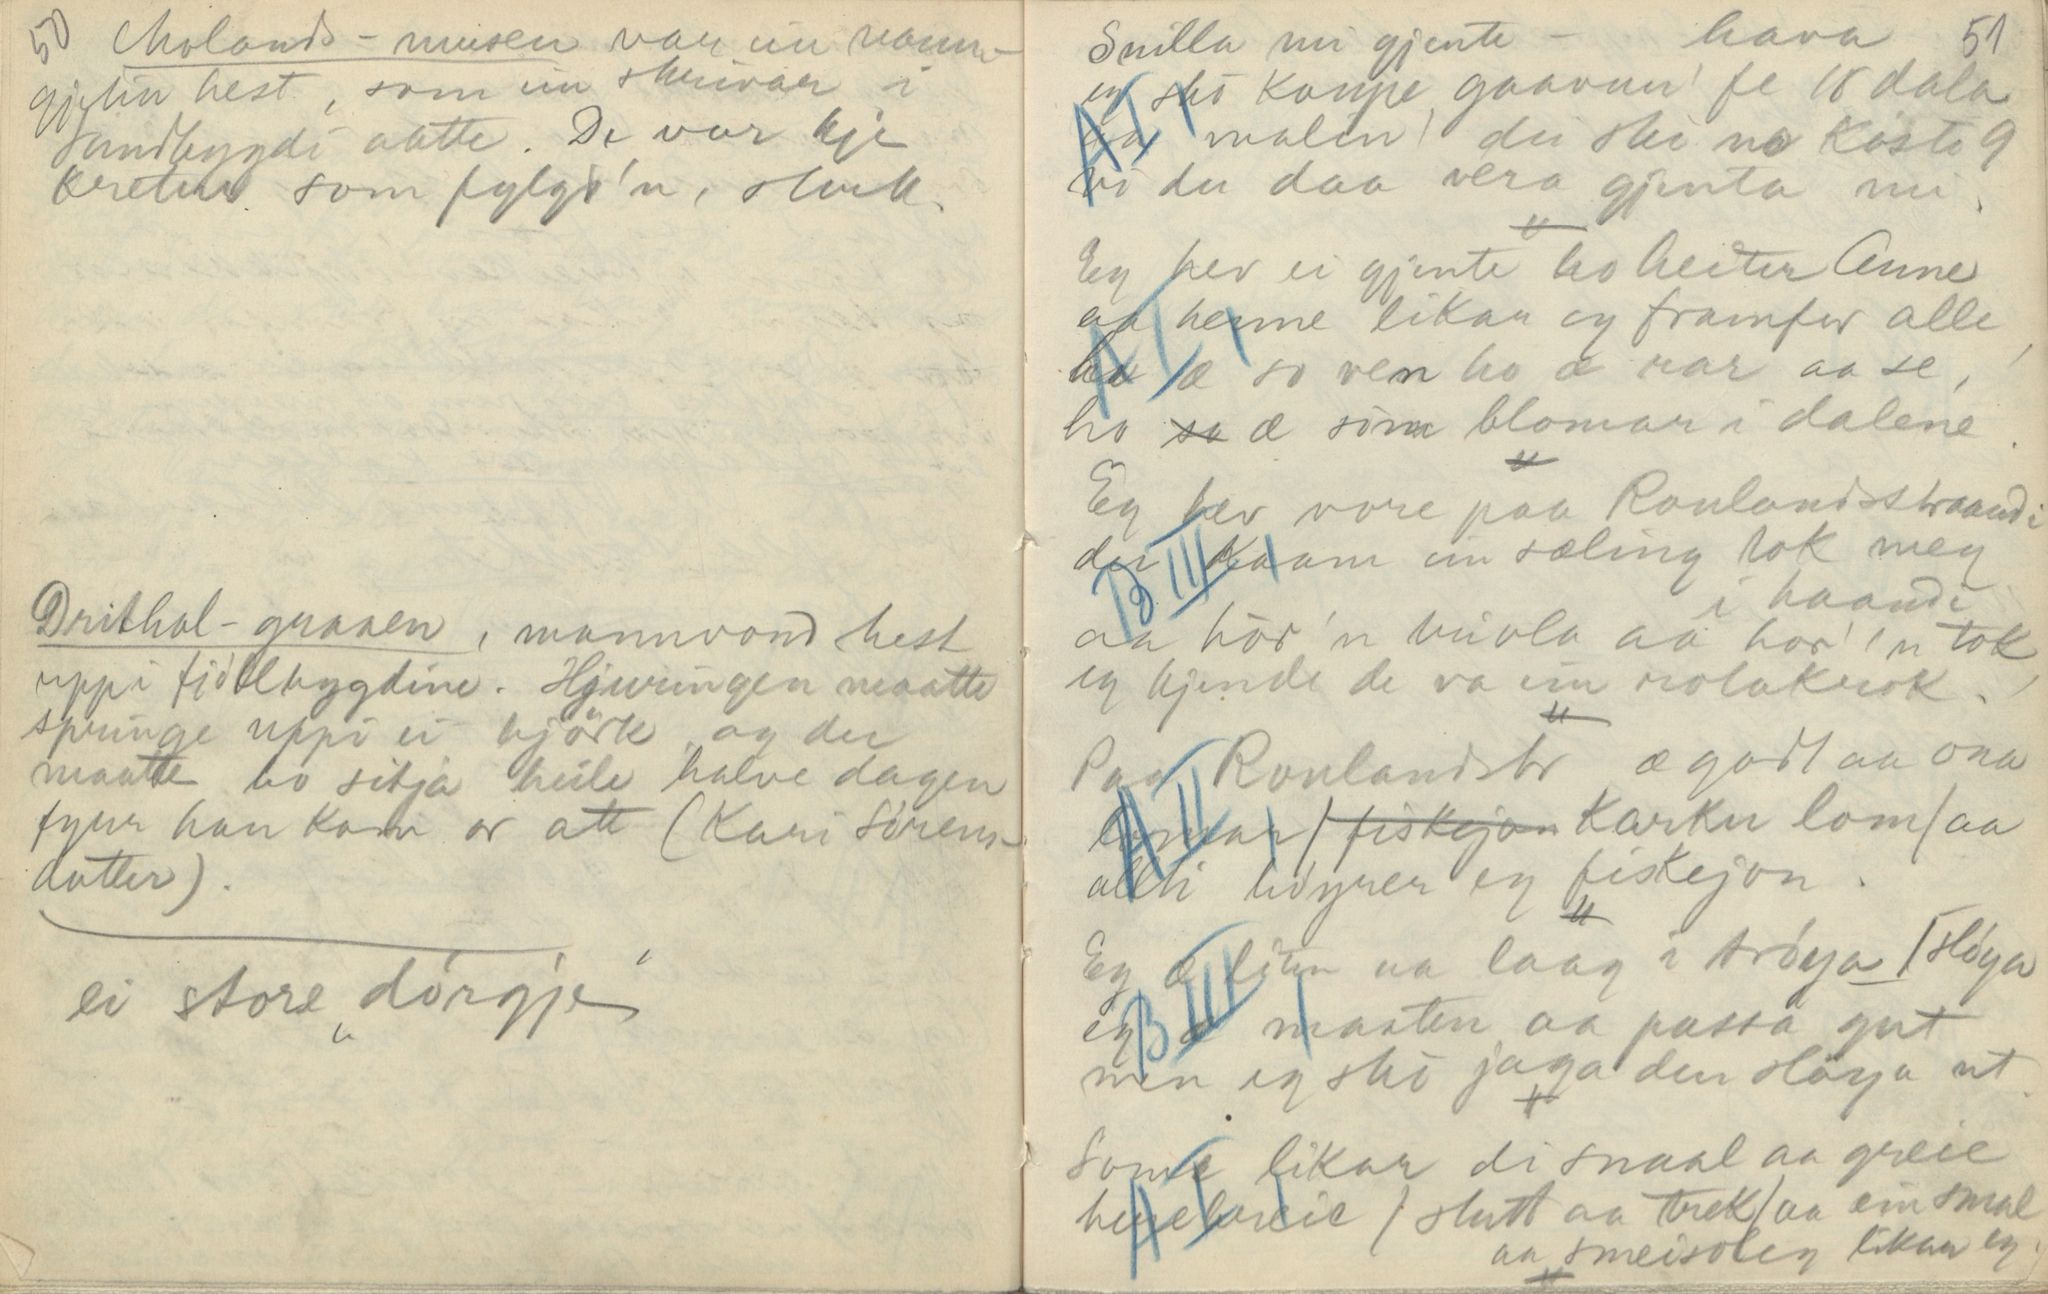 50
Molands-musen var ein vaum-
gjetin hest, som ein skrivar i
Sandbygdi aatte. De var kje
kretur som fylgd'n, sluk.
Drithol-graaen, mannvond hest
uppi fjøllbygdine. Hjuringen maatte
springe uppi ei bjørk, og der
maatte ho sitja heile halve dagen
fyrr han kom or att (Kari Sørens-
dotter).
ei store "dörgje"
51
Snilla mi gjente - hava
eg ska kaupe gaavun' fe 18 dala
aa malin' dei ska no koste 9
vi du daa vera gjenta mi.
"
Eg hev ei gjente ho heiter Anne
aa henne likar eg framfer alle,
ho æ so ven ho æ rar aa se,
ho so æ som blomar i dalene.
"
Eg hev vore paa Raulandsstraandi
der kaam ein sæling tok meg
i haandi
aa hör'n tvivla aa hor'n tok,
eg kjende de va ein rolakrok.
"
Paa Raulandstr æ godt aa ona
lomar / fiskejon karku lom / aa
alli höyrer eg fiskejon.
"
Eg æ liten aa laag i tröya / slöya
eg æ maaten aa passa gut
men eg ska jaga den slöya ut.
"
Some likar di snaal aa greie
herebreie / slutt aa trek / aa ein smal
aa smeisoleg likar eg.
"
AI,
AI,
BIII,
AII,
BIII,
AI,